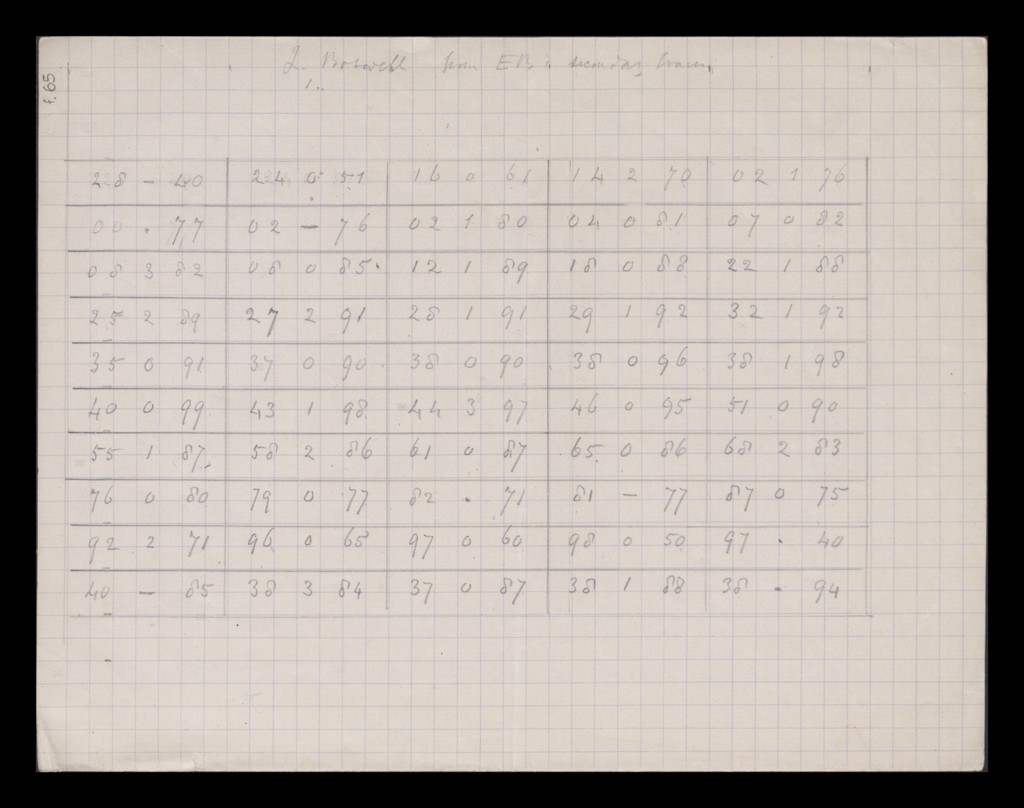 f. 65
J. Boswell from EB's secondary tracing
1.
28 – 40 24 0 51 16 0 61 14 2 70 02 1 76
00 . 77 02 – 76 02 1 80 04 0 81 07 0 82
08 3 82 08 0 85 12 1 89 18 0 88 22 1 88
25 2 89 27 2 91 28 1 91 29 1 92 32 1 92
35 0 91 37 0 90 38 0 90 38 0 96 38 1 98
40 0 99 43 1 98 44 3 97 46 0 95 51 0 90
55 1 87 58 2 86 61 0 87 65 0 86 68 2 83
76 0 80 79 0 77 82 . 71 81 – 77 87 0 75
92 2 71 96 0 65 97 0 60 98 0 50 97 . 40
40 – 85 38 3 84 37 0 87 38 1 88 38 . 94